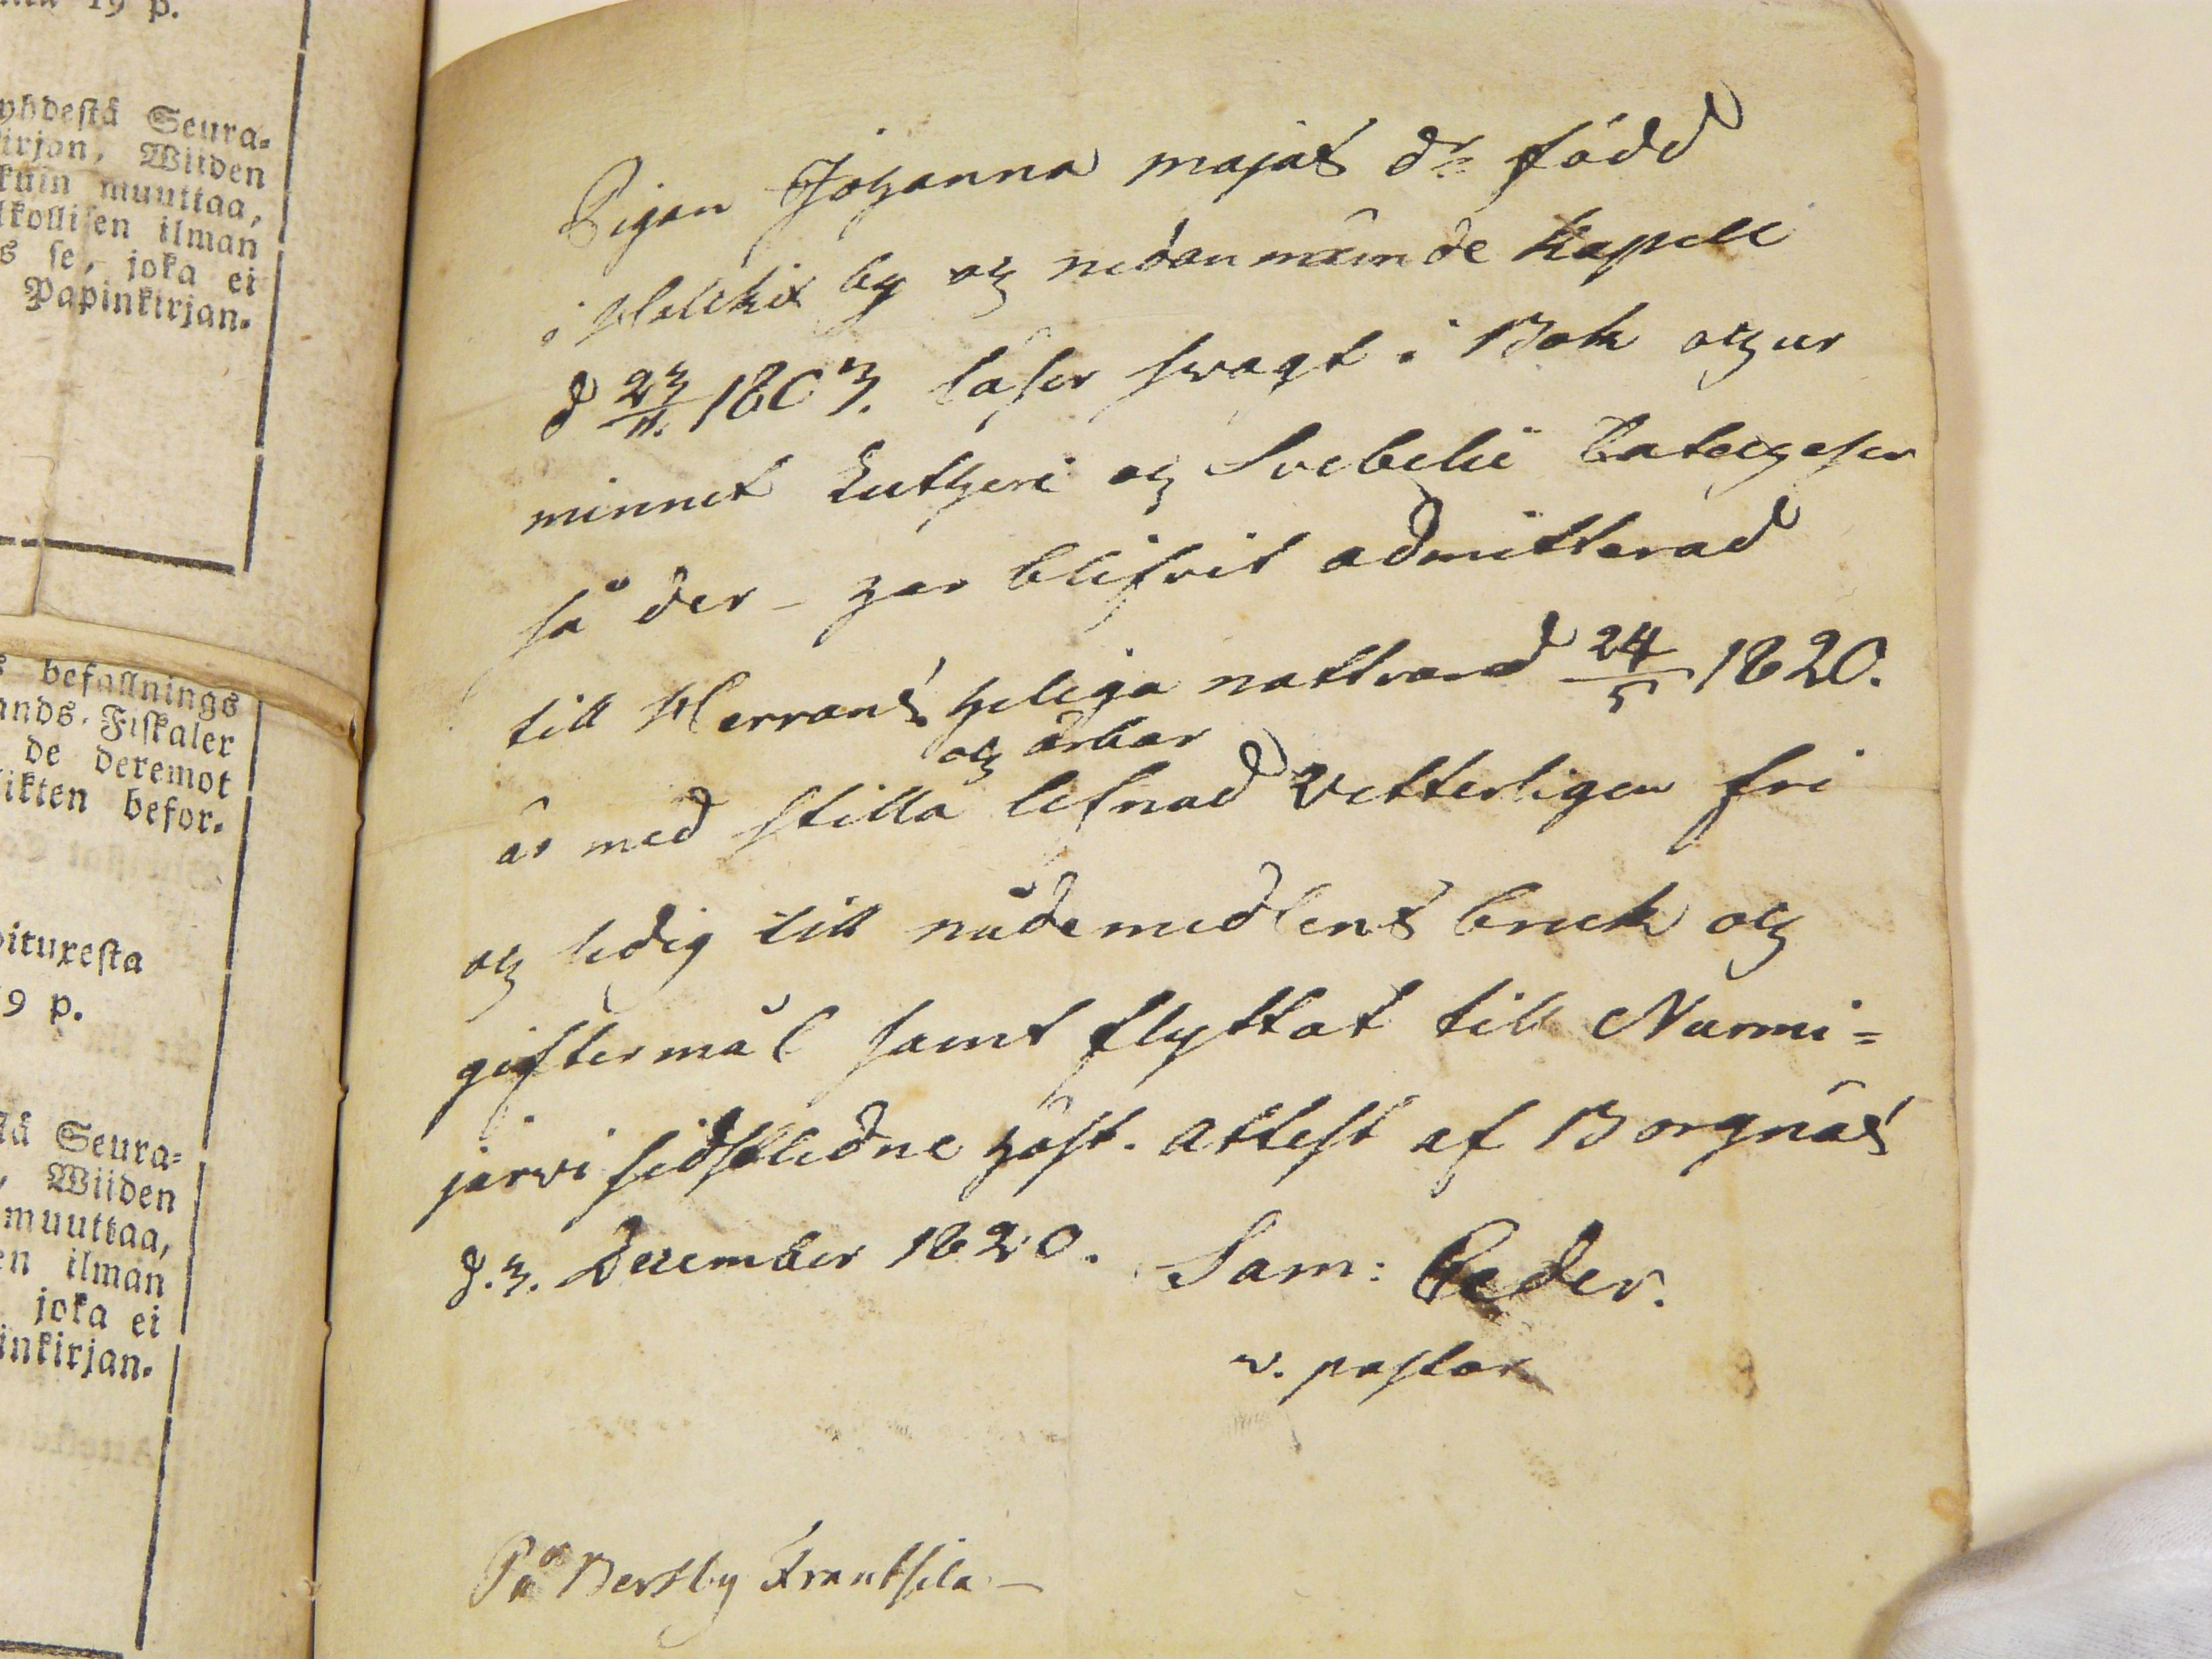 19 p.
yhdestä Seura-
irjan, Wiiden
kuin muuttaa,
lkollisen ilman
s se, joka ei
Papinkirjan-
befallnings
ands-Fiskaler
de deremot
likten befor-
ituxesta
9 p.
lä Seura-
, Wiiden
muuttaa,
en ilman
joka ei
inkirjan-
Pigan Johanna majas dr född
i by och nedannämnde Kapell
d 23/11. 1803. läser svagt i Bok och ur
minnet Lutheri och Svebelii Cateches
så der – har blifvit admitterad
till Herrans heliga nattvard 24/5 1820.
och ärbar
är med stilla lefnad Vetterligen fri
och ledig till nådemedlens bruk och
giftermål samt flyttat till Nurmi=
järvi sidstledne höst. attest af Borgnäs
d. 3. December 1820. Sam: Ceder.
v. pastor
På Bertby